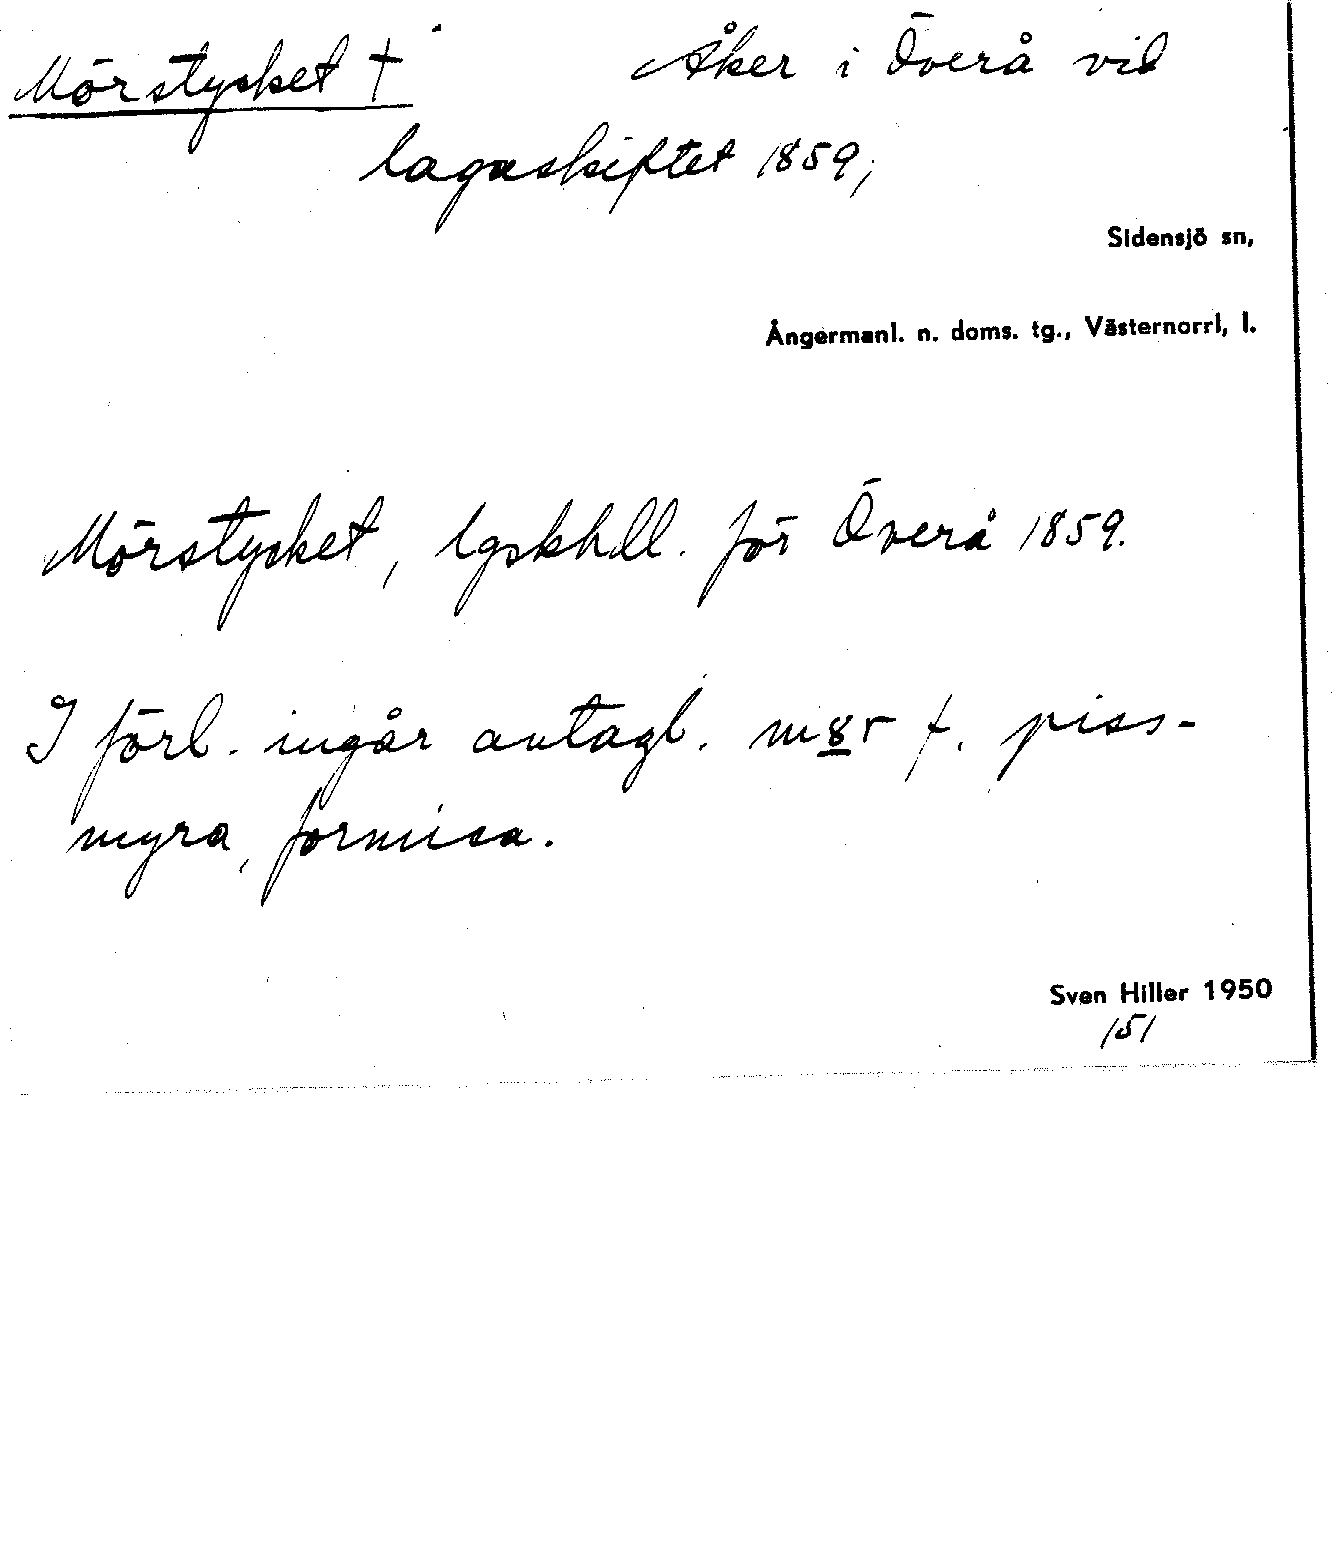 Mörstycket † Åker i Överå vid
lagaskiftet 1859,
Sidensjö sn,
Ångermanl. n. doms. tg., Västernorrl, l.
Mörstycket, lgskhdl. för Överå 1859.
I förl. ingår antagl. m8r f. piss-
myra, formica.
Sven Hiller 1950
151